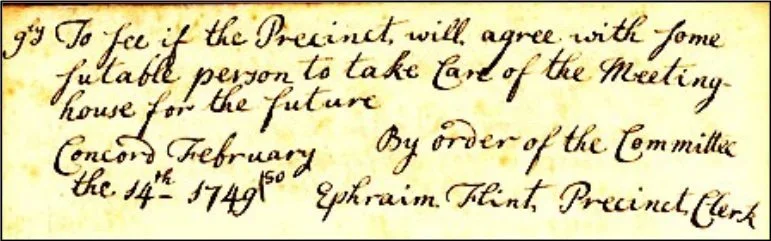 9ly To see if the Precinct will agree with some
sutable person to take Care of the Meeting-
house for the future
Concord February By order of the Committee
the 14th 1749/50 Ephraim Flint Precinct Clerk